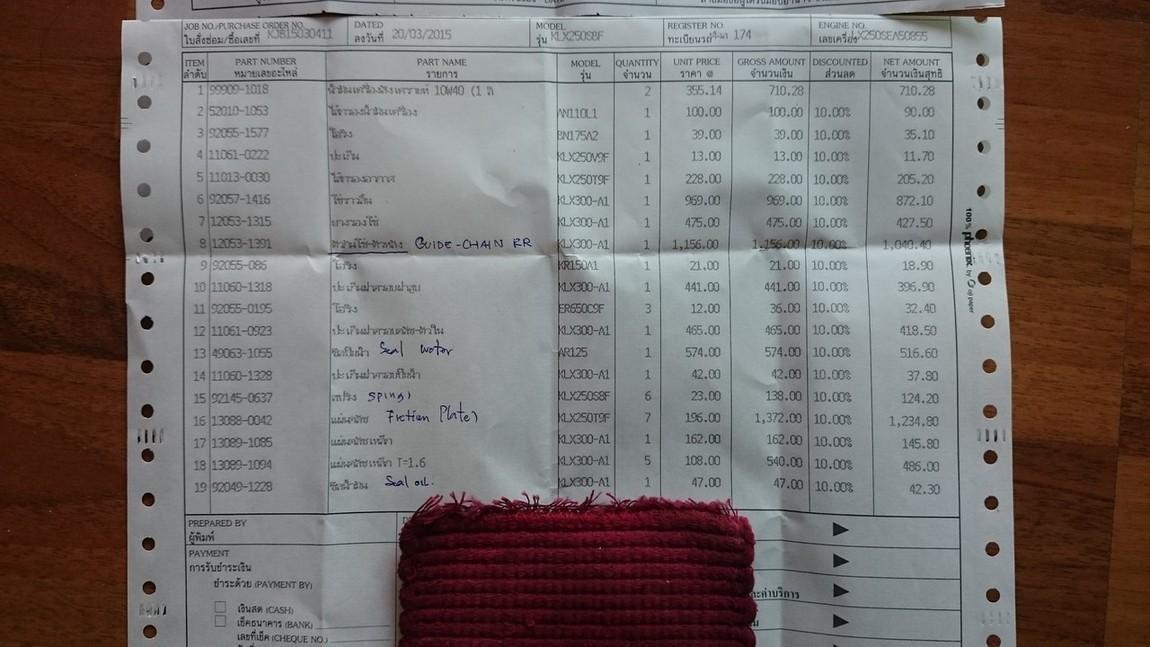 JOB NO./PURCHASE ORDER NO. DATED MODEL REGISTER NO. ENGINE NO.
ใบสั่งซ่อม/ชื่อเลขที่ KJB15030411 ลงวันที่ 20/03/2015 รุ่น KLX250S8F ทะเบียนรถ 174 เลขเครื่อง LX250SEA50855
ITEM PART NUMBER PART NAME MODEL QUANTITY UNIT PRICE GROSS AMOUNT DISCOUNTED NET AMOUNT
ลำดับ หมายเลขอะไหล่ รายการ รุ่น จำนวน ราคา @ จำนวนเงิน ส่วนลด จำนวนเงินสุทธิ
1 99909-1018 10W40 (1 ล 2 355.14 710.28 710.28
2 52010-1053 ไส้กรองน้ำมันเครื่อง AN110L1 1 100.00 100.00 10.00% 90.00
3 92055-1577 โอริง BN175A2 1 39.00 39.00 10.00% 35.10
4 11061-0222 ปะเก็น KLX250V9F 1 13.00 13.00 10.00% 11.70
5 11013-0030 ไส้กรองอากาศ KLX250T9F 1 228.00 228.00 10.00% 205.20
6 92057-1416 โซ่ราวลิ้น KLX300-A1 1 969.00 969.00 10.00% 872.10
7 12053-1315 ยางรองโซ่ KLX300-A1 1 475.00 475.00 10.00% 427.50
8 12053-1391 GUIDE-CHAIN RR KLX300-A1 1 1,156.00 1,156.00 10.00% 1,040.40
9 92055-086 โอริง KR150A1 1 21.00 21.00 10.00% 18.90
10 11060-1318 ปะเก็นฝาครอบฝาสูบ KLX300-A1 1 441.00 441.00 10.00% 396.90
11 92055-0195 โอริง ER650C9F 3 12.00 36.00 10.00% 32.40
12 11061-0923 ปะเก็นฝาครอบคลัช-ตัวใน KLX300-A1 1 465.00 465.00 10.00% 418.50
13 49063-1055 Seal woter AR125 1 574.00 574.00 10.00% 516.60
14 11060-1328 KLX300-A1 1 42.00 42.00 10.00% 37.80
15 92145-0637 สปริง KLX250S8F 6 23.00 138.00 10.00% 124.20
16 13088-0042 แผ่นคลัช Fiction Plate) KLX250T9F 7 196.00 1,372.00 10.00% 1,234.80
17 13089-1085 แผ่นคลัชเหล็ก KLX300-A1 1 162.00 162.00 10.00% 145.80
18 13089-1094 แผ่นคลัชเหล็ก T=1.6 KLX300-A1 5 108.00 540.00 10.00% 486.00
19 92049-1228 ซีลน้ำมัน Seal oil. KLX300-A1 1 47.00 47.00 10.00% 42.30
100% phoenix by paper
PREPARED BY
ผู้พิมพ์
PAYMENT
การรับชำระเงิน
ชำระด้วย (PAYMENT BY)
และค่าบริการ
เงินสด (CASH)
เช็คธนาคาร (BANK)
เลขที่เช็ค (CHEQUE NO.)